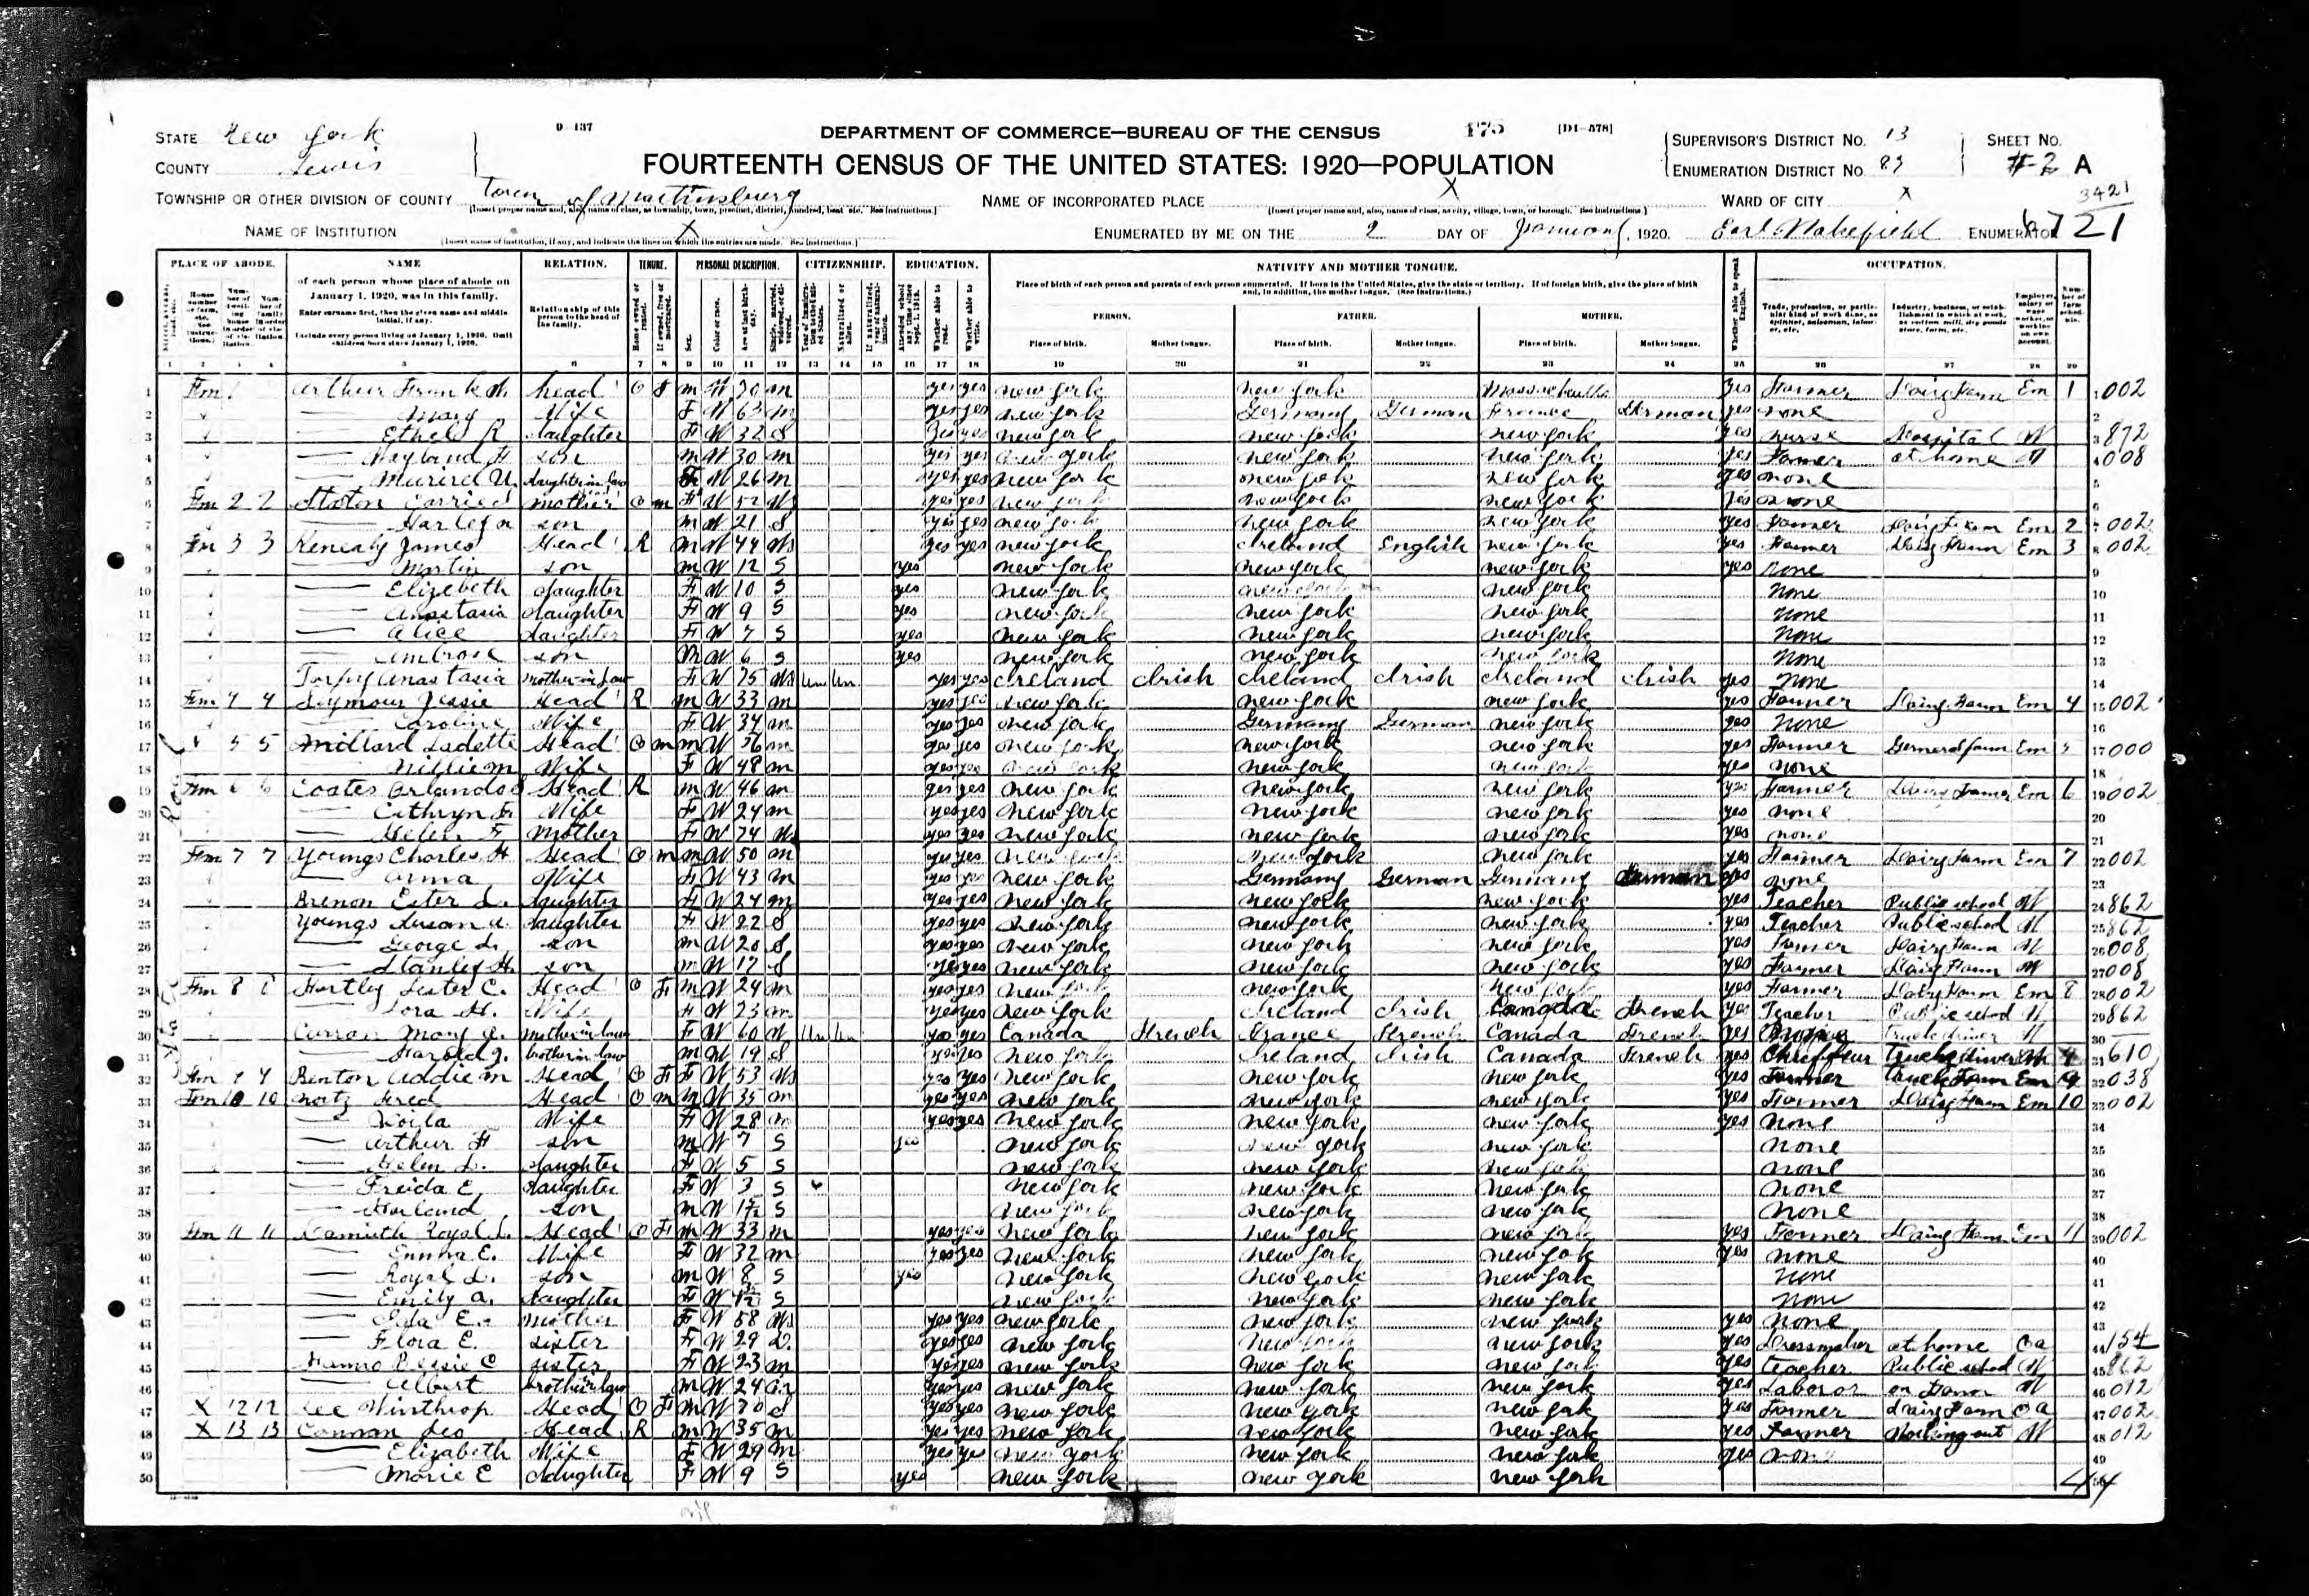 D-137 DEPARTMENT OF COMMERCE—BUREAU OF THE CENSUS 175 [D1-578]
STATE New York SUPERVISOR'S DISTRICT No. 13 SHEET No.
COUNTY Lewis FOURTEENTH CENSUS OF THE UNITED STATES: 1920—POPULATION ENUMERATION DISTRICT No. #2 A
3421
TOWNSHIP OR OTHER DIVISION OF COUNTY Town of Martinsburg NAME OF INCORPORATED PLACE X WARD OF CITY X
NAME OF INSTITUTION X ENUMERATED BY ME ON THE 2 DAY OF January, 1920. Earl Wakefield ENUMERATOR 6721
PLACE OF ABODE. NAME RELATION. TENURE. PERSONAL DESCRIPTION. CITIZENSHIP. EDUCATION. NATIVITY AND MOTHER TONGUE. OCCUPATION.
of each person whose place of abode on January 1, 1920, was in this family.
Enter surname first, then the given name and middle initial, if any.
Include every person living on January 1, 1920. Omit children born since January 1, 1920.
Relationship of this person to the head of the family.
Place of birth of each person and parents of each person enumerated. If born in the United States, give the state or territory. If of foreign birth, give the place of birth and, in addition, the mother tongue. (See Instructions.)
PERSON. FATHER. MOTHER.
Place of birth. Mother tongue. Place of birth. Mother tongue. Place of birth. Mother tongue.
1 2 3 4 5 6 7 8 9 10 11 12 13 14 15 16 17 18 19 20 21 22 23 24 25 26 27 28 29
1 Fm 1 Arthur Frank W. head O F m W 70 m yes yes new york new york Massachusetts yes Farmer Dairy Farm Em 1 002
2 — Mary Wife F W 63 m yes yes new york Germany German France German yes none
3 — Ethel R daughter F W 32 S yes yes new york new york new york yes nurse Hospital W 872
4 — Wayland F son m W 30 m yes yes new york new york new york yes Farmer at home W 008
5 — daughter in law F W 26 m yes yes new york new york new york yes none
6 Fm 2 2 Carrie mother O m F W 52 Wd yes yes new york new york new york yes none
7 — Harley son m W 21 S yes yes new york new york new york yes Farmer Dairy Farm Em 2 002
8 Fm 3 3 Kenealy James Head R m W 44 Wd yes yes new york Ireland English new york yes Farmer Dairy Farm Em 3 002
9 — Martin son m W 12 S yes new york new york new york yes none
10 — Elizebeth daughter F W 10 S yes new york new york new york none
11 — Anastasia daughter F W 9 S yes new york new york new york none
12 — Alice daughter F W 7 S yes new york new york new york none
13 — Ambrose son M W 6 S yes new york new york new york none
14 Anastasia mother in law F W 75 Wd Un Un yes yes Ireland Irish Ireland Irish Ireland Irish yes none
15 Fm 4 4 Seymour Jessie Head R m W 33 m yes yes new york new york new york yes Farmer Dairy Farm Em 4 002
16 — Caroline Wife F W 34 m yes yes new york Germany German new york yes none
17 5 5 Millard Ladette Head O m m W 56 m yes yes new york new york new york yes Farmer General farm Em 5 000
18 — Nillie M Wife F W 48 m yes yes new york new york new york yes none
19 Fm 6 6 Coates Orlando S Head R m W 46 m yes yes new york new york new york yes Farmer Dairy Farmer Em 6 002
20 — Cathryn Wife F W 24 m yes yes new york new york new york yes none
21 — Helen F mother F W 74 Wd yes yes new york new york new york yes none
22 Fm 7 7 Youngs Charles H Head O m m W 50 m yes yes new york new york new york yes Farmer Dairy Farm Em 7 002
23 — Anna Wife F W 43 m yes yes new york Germany German Germany German yes none
24 Brenon Ester L. daughter F W 24 m yes yes new york new york new york yes Teacher Public school W 862
25 Youngs Susan A. daughter F W 22 S yes yes new york new york new york yes Teacher Public school W 862
26 — George L. son m W 20 S yes yes new york new york new york yes Farmer Dairy Farm W 008
27 — Stanley H. son m W 17 S yes yes new york new york new york yes Farmer Dairy Farm W 008
28 Fm 8 8 Hartley Lester C. Head O F m W 24 m yes yes new york new york new york yes Farmer Dairy Farm Em 8 002
29 — Lora H. Wife F W 23 m yes yes new york Ireland Irish Canada French yes Teacher Public school W 862
30 Curran Mary J. mother in law F W 60 W Un Un yes yes Canada French France French Canada French yes
31 — Harold J. brother in law m W 19 S yes yes new york Ireland Irish Canada French yes Chauffeur Truck driver W 610
32 Fm 9 9 Benton Addie M Head O F F W 53 Wd yes yes new york new york new york yes Farmer Truck Farm Em 9 038
33 Fm 10 10 Nortz Fred Head O m m W 35 m yes yes new york new york new york yes Farmer Dairy Farm Em 10 002
34 — Wife F W 28 m yes yes new york new york new york yes none
35 — Arthur F son m W 7 S yes new york new york new york none
36 — Helen L. daughter F W 5 S new york new york new york none
37 — Freida E. daughter F W 3 S new york new york new york none
38 — Harland son m W S new york new york new york none
39 Fm 11 11 Royal L. Head O F m W 33 m yes yes new york new york new york yes Farmer Dairy Farm Em 11 002
40 — Emma E. Wife F W 32 m yes yes new york new york new york yes none
41 — Royal L. son m W 8 S yes new york new york new york none
42 — Emily A. daughter F W S new york new york new york none
43 — E. mother F W 58 Wd yes yes new york new york new york yes none
44 — Flora E. sister F W 29 D. yes yes new york new york new york yes Dressmaker at home Oa 154
45 sister F W 23 m yes yes new york new york new york yes teacher Public school W 862
46 — Albert brother in law m W 24 m yes yes new york new york new york yes Laborer on Farm W 012
47 X 12 12 Lee Winthrop Head O F m W 70 S yes yes new york new york new york yes Farmer Dairy Farm Oa 002
48 X 13 13 Connan Leo Head R m W 35 m yes yes new york new york new york yes Farmer Working out W 012
49 — Elizabeth Wife F W 29 m yes yes new york new york new york yes none
50 — Marie E daughter F W 9 S yes new york new york new york